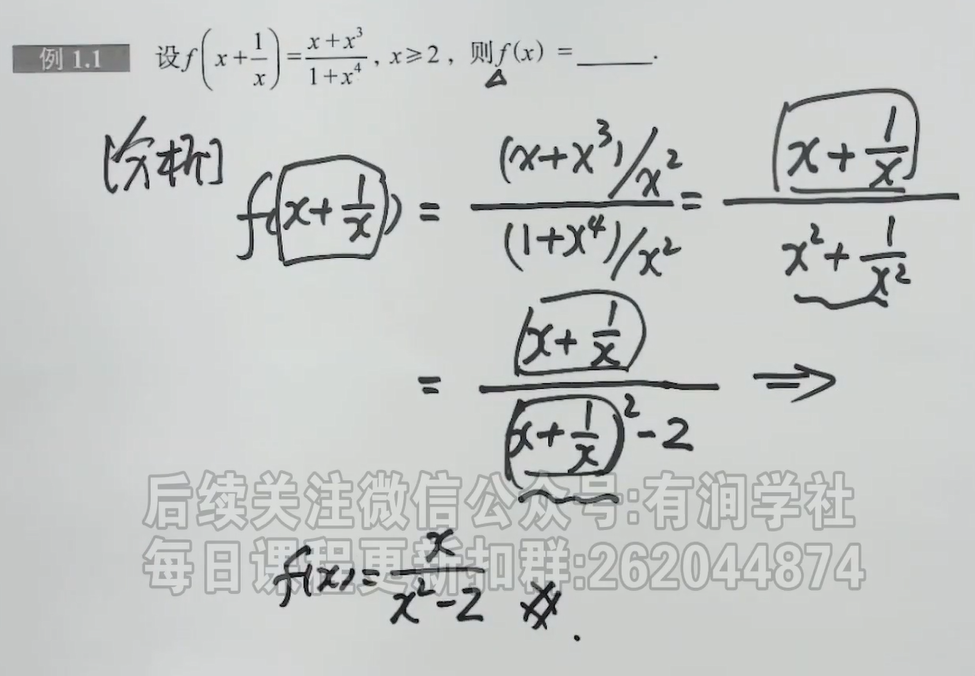 例 1.1 设f(x+1/x)=(x+x³)/(1+x⁴), x≥2, 则f(x) = ______.
[分析] f(x+1/x) = (x+x³)/x² / (1+x⁴)/x² = (x+1/x) / (x²+1/x²)
= (x+1/x) / ((x+1/x)²-2) ⇒
后续关注微信公众号:有润学社
每日课程更新扣群:262044874
f(x)= x/(x²-2) #.